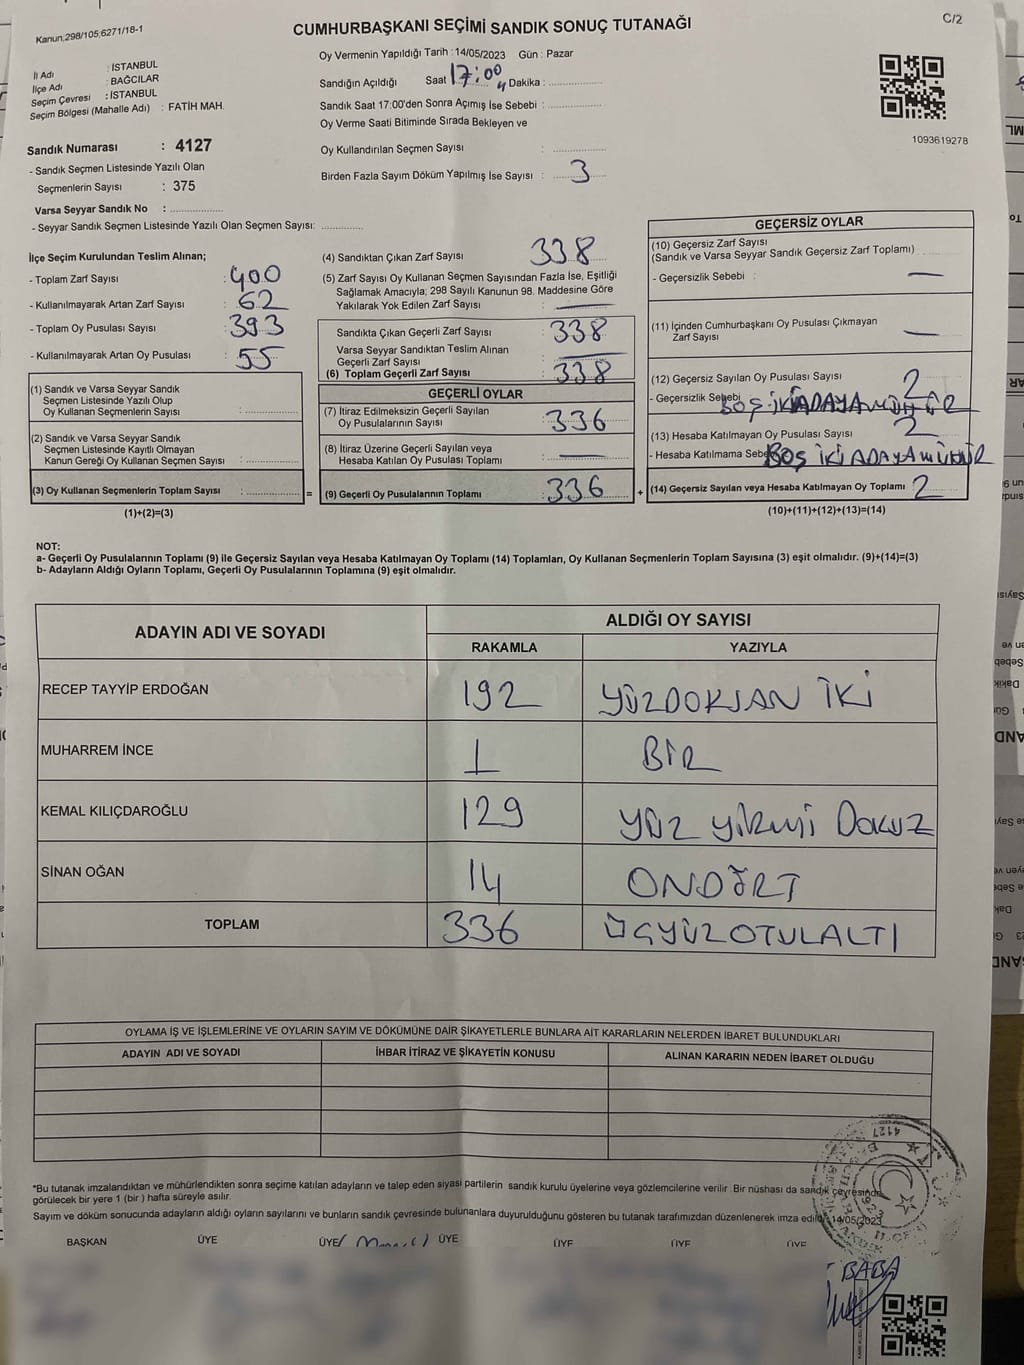 Kanun,298/105,6271/18-1
CUMHURBAŞKANI SEÇİMİ SANDIK SONUÇ TUTANAĞI
C/2
İl Adı : İSTANBUL
İlçe Adı : BAĞCILAR
Seçim Çevresi : İSTANBUL
Seçim Bölgesi (Mahalle Adı) : FATİH MAH.
Oy Vermenin Yapıldığı Tarih : 14/05/2023 Gün : Pazar
Sandığın Açıldığı Saat 17:00 Dakika :
Sandık Saat 17:00'den Sonra Açımış İse Sebebi :
Oy Verme Saati Bitiminde Sırada Bekleyen ve
Oy Kullandırılan Seçmen Sayısı :
Birden Fazla Sayım Döküm Yapılmış İse Sayısı : 3
1093619278
Sandık Numarası : 4127
- Sandık Seçmen Listesinde Yazılı Olan
Seçmenlerin Sayısı : 375
Varsa Seyyar Sandık No :
- Seyyar Sandık Seçmen Listesinde Yazılı Olan Seçmen Sayısı:
İlçe Seçim Kurulundan Teslim Alınan;
- Toplam Zarf Sayısı : 400
- Kullanılmayarak Artan Zarf Sayısı : 62
- Toplam Oy Pusulası Sayısı : 393
- Kullanılmayarak Artan Oy Pusulası : 55
(1) Sandık ve Varsa Seyyar Sandık
Seçmen Listesinde Yazılı Olup
Oy Kullanan Seçmenlerin Sayısı :
(2) Sandık ve Varsa Seyyar Sandık
Seçmen Listesinde Kayıtlı Olmayan
Kanun Gereği Oy Kullanan Seçmen Sayısı :
(3) Oy Kullanan Seçmenlerin Toplam Sayısı :
(1)+(2)=(3)
(4) Sandıktan Çıkan Zarf Sayısı : 338
(5) Zarf Sayısı Oy Kullanan Seçmen Sayısından Fazla İse, Eşitliği
Sağlamak Amacıyla; 298 Sayılı Kanunun 98. Maddesine Göre
Yakılarak Yok Edilen Zarf Sayısı : —
Sandıkta Çıkan Geçerli Zarf Sayısı : 338
Varsa Seyyar Sandıktan Teslim Alınan
Geçerli Zarf Sayısı : —
(6) Toplam Geçerli Zarf Sayısı : 338
GEÇERLİ OYLAR
(7) İtiraz Edilmeksizin Geçerli Sayılan
Oy Pusulalarının Sayısı : 336
(8) İtiraz Üzerine Geçerli Sayılan veya
Hesaba Katılan Oy Pusulası Toplamı : —
= (9) Geçerli Oy Pusulalarının Toplamı : 336 +
GEÇERSİZ OYLAR
(10) Geçersiz Zarf Sayısı
(Sandık ve Varsa Seyyar Sandık Geçersiz Zarf Toplamı) :
- Geçersizlik Sebebi : —
(11) İçinden Cumhurbaşkanı Oy Pusulası Çıkmayan
Zarf Sayısı : —
(12) Geçersiz Sayılan Oy Pusulası Sayısı : 2
- Geçersizlik Sebebi BOŞ-İKİ ADAYA MÜHÜR
(13) Hesaba Katılmayan Oy Pusulası Sayısı : 2
- Hesaba Katılmama Sebebi BOŞ İKİ ADAYA MÜHÜR
(14) Geçersiz Sayılan veya Hesaba Katılmayan Oy Toplamı : 2
(10)+(11)+(12)+(13)=(14)
NOT:
a- Geçerli Oy Pusulalarının Toplamı (9) ile Geçersiz Sayılan veya Hesaba Katılmayan Oy Toplamı (14) Toplamları, Oy Kullanan Seçmenlerin Toplam Sayısına (3) eşit olmalıdır. (9)+(14)=(3)
b- Adayların Aldığı Oyların Toplamı, Geçerli Oy Pusulalarının Toplamına (9) eşit olmalıdır.
ADAYIN ADI VE SOYADI
ALDIĞI OY SAYISI
RAKAMLA YAZIYLA
RECEP TAYYİP ERDOĞAN 192 YÜZDOKSAN İKİ
MUHARREM İNCE 1 BİR
KEMAL KILIÇDAROĞLU 129 YÜZ YİRMİ DOKUZ
SİNAN OĞAN 14 ONDÖRT
TOPLAM 336 ÜÇYÜZOTUZALTI
OYLAMA İŞ VE İŞLEMLERİNE VE OYLARIN SAYIM VE DÖKÜMÜNE DAİR ŞİKAYETLERLE BUNLARA AİT KARARLARIN NELERDEN İBARET BULUNDUKLARI
ADAYIN ADI VE SOYADI İHBAR İTİRAZ VE ŞİKAYETİN KONUSU ALINAN KARARIN NEDEN İBARET OLDUĞU
*Bu tutanak imzalandıktan ve mühürlendikten sonra seçime katılan adayların ve talep eden siyasi partilerin sandık kurulu üyelerine veya gözlemcilerine verilir. Bir nüshası da sandık çevresinde
görülecek bir yere 1 (bir) hafta süreyle asılır.
Sayım ve döküm sonucunda adayların aldığı oyların sayılarını ve bunların sandık çevresinde bulunanlara duyurulduğunu gösteren bu tutanak tarafımızdan düzenlenerek imza edildi. 14/05/2023
BAŞKAN ÜYE ÜYE ÜYE ÜYE ÜYE ÜYE
4127
BABA